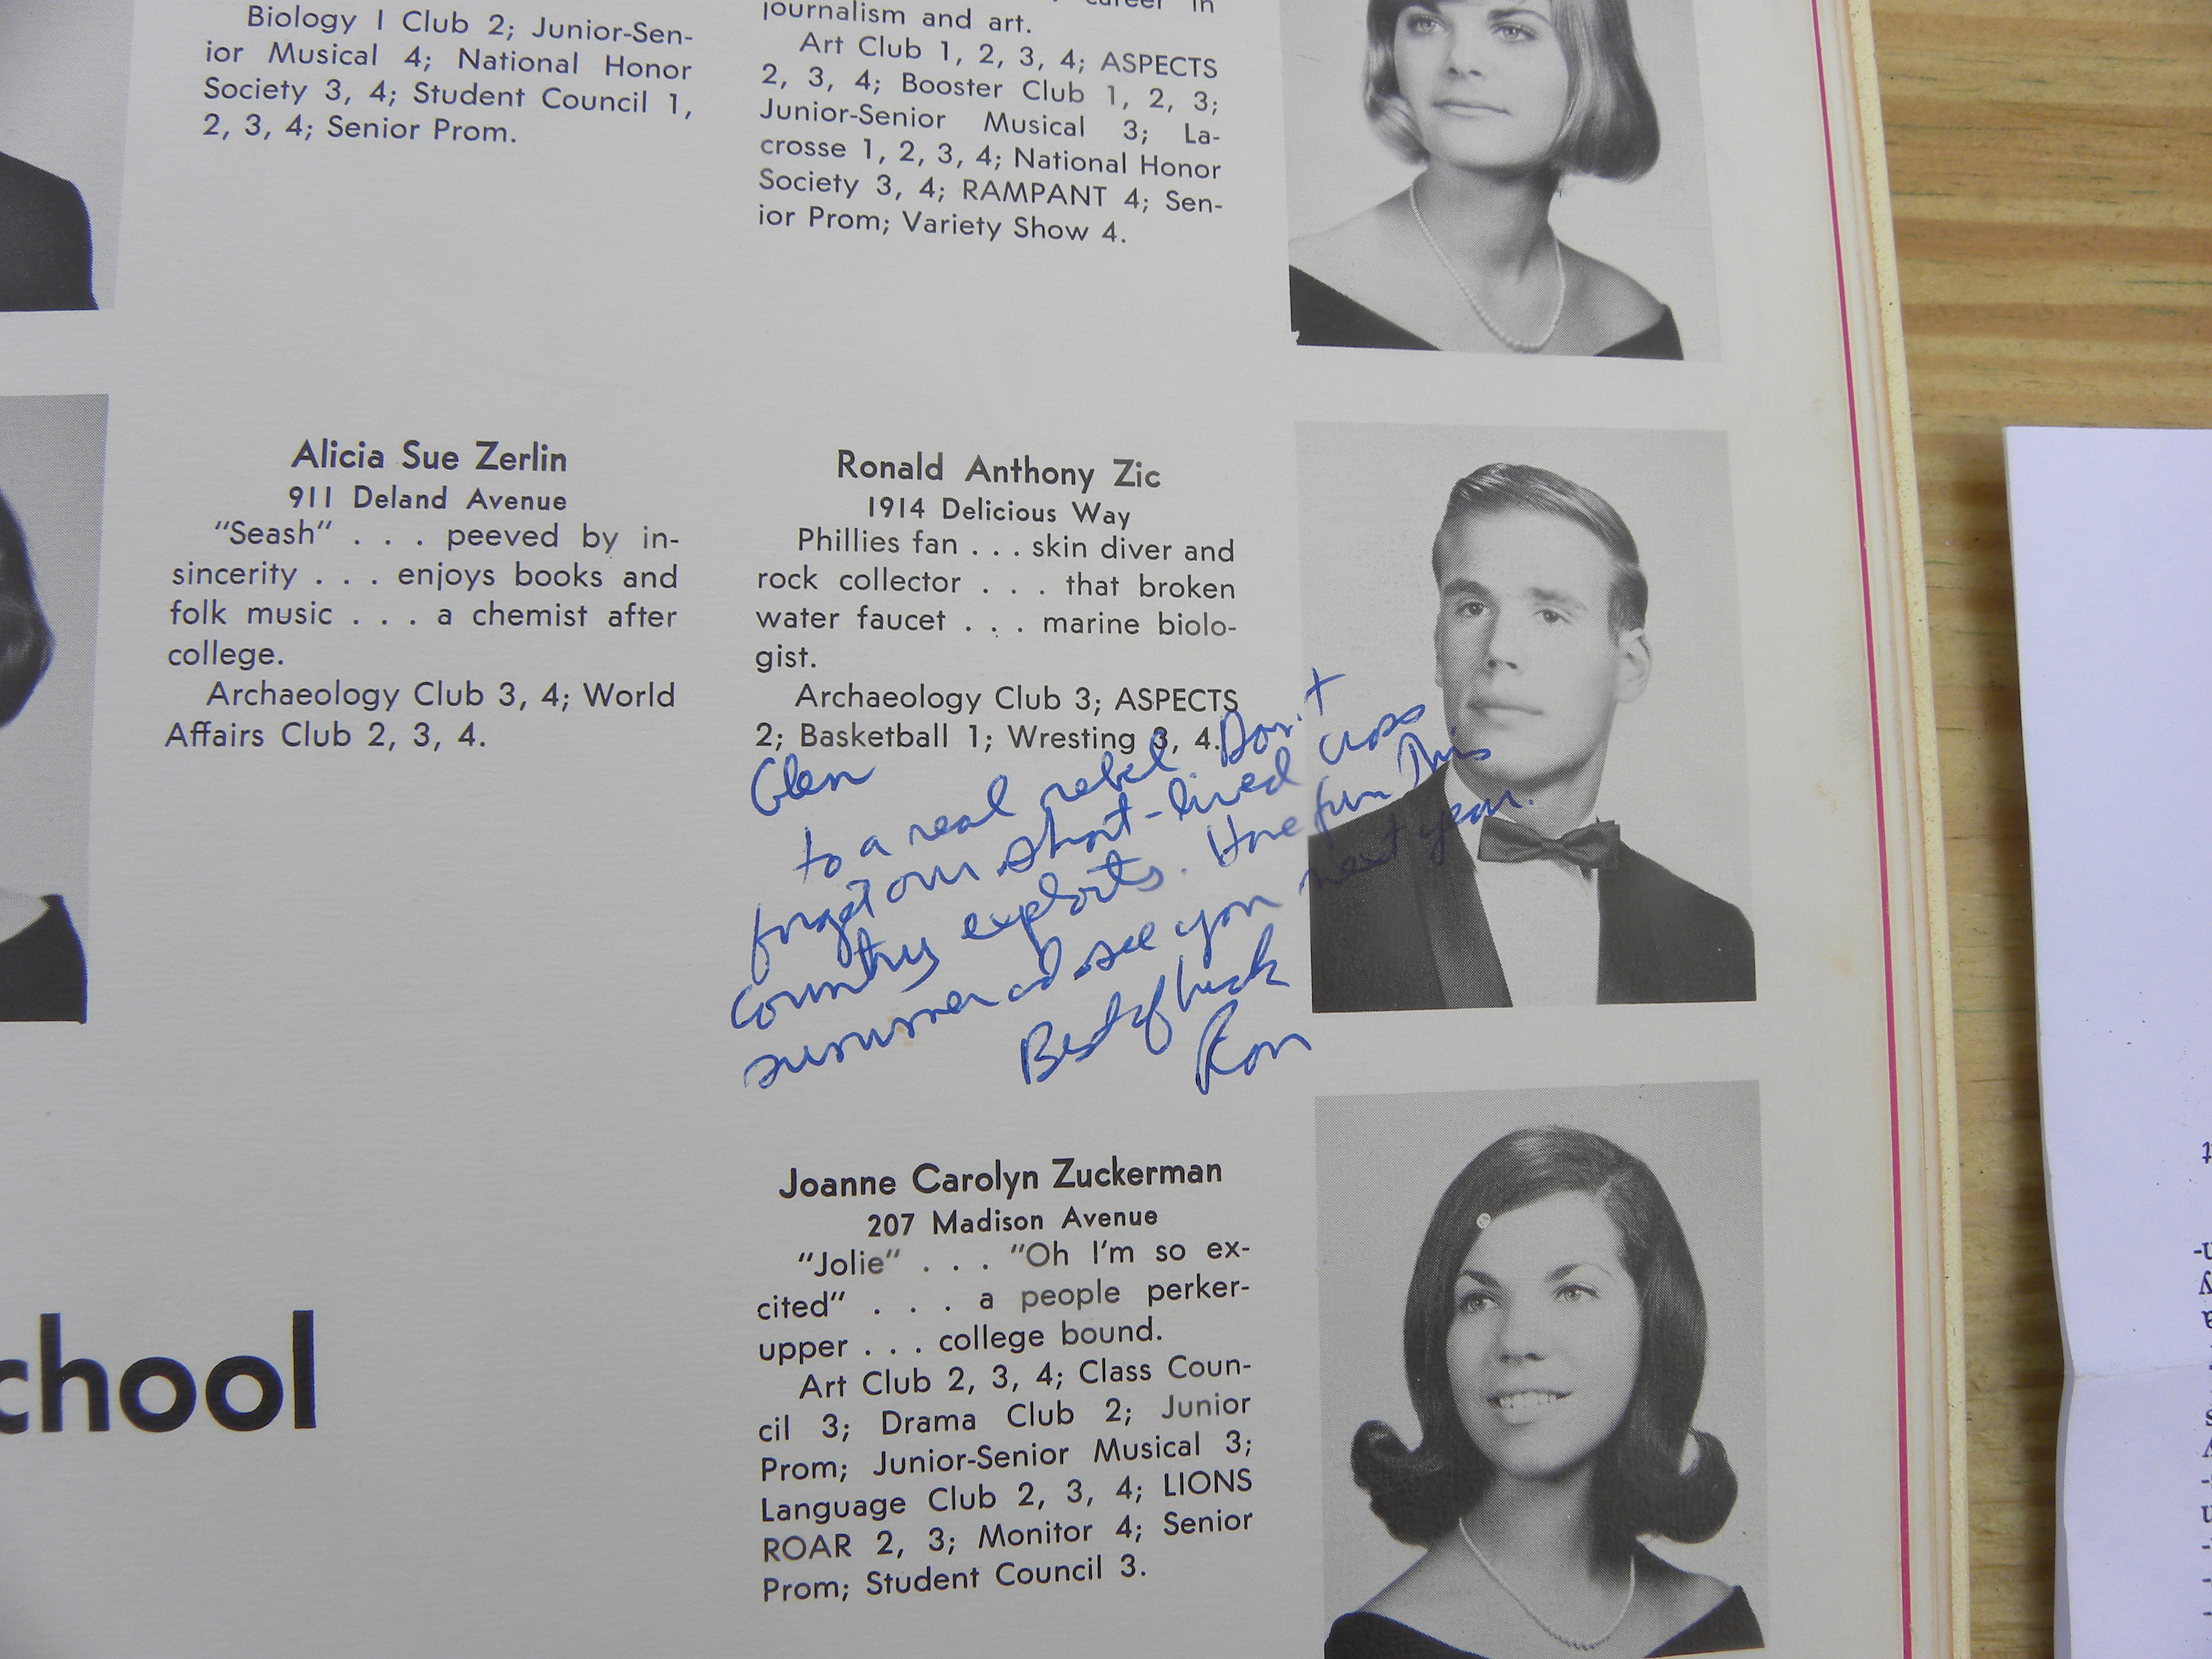 Biology I Club 2; Junior-Sen-
ior Musical 4; National Honor
Society 3, 4; Student Council 1,
2, 3, 4; Senior Prom.
career in
journalism and art.
Art Club 1, 2, 3, 4; ASPECTS
2, 3, 4; Booster Club 1, 2, 3;
Junior-Senior Musical 3; La-
crosse 1, 2, 3, 4; National Honor
Society 3, 4; RAMPANT 4; Sen-
ior Prom; Variety Show 4.
Alicia Sue Zerlin
911 Deland Avenue
"Seash" . . . peeved by in-
sincerity . . . enjoys books and
folk music . . . a chemist after
college.
Archaeology Club 3, 4; World
Affairs Club 2, 3, 4.
Ronald Anthony Zic
1914 Delicious Way
Phillies fan . . . skin diver and
rock collector . . . that broken
water faucet . . . marine biolo-
gist.
Archaeology Club 3; ASPECTS
2; Basketball 1; Wresting 3, 4.
Glen
to a real rebel Don't
forget our short-lived cross
country exploits. Have fun This
summer and see you next year.
Best of luck
Ron
Joanne Carolyn Zuckerman
207 Madison Avenue
"Jolie" . . . "Oh I'm so ex-
cited" . . . a people perker-
upper . . . college bound.
Art Club 2, 3, 4; Class Coun-
cil 3; Drama Club 2; Junior
Prom; Junior-Senior Musical 3;
Language Club 2, 3, 4; LIONS
ROAR 2, 3; Monitor 4; Senior
Prom; Student Council 3.
chool